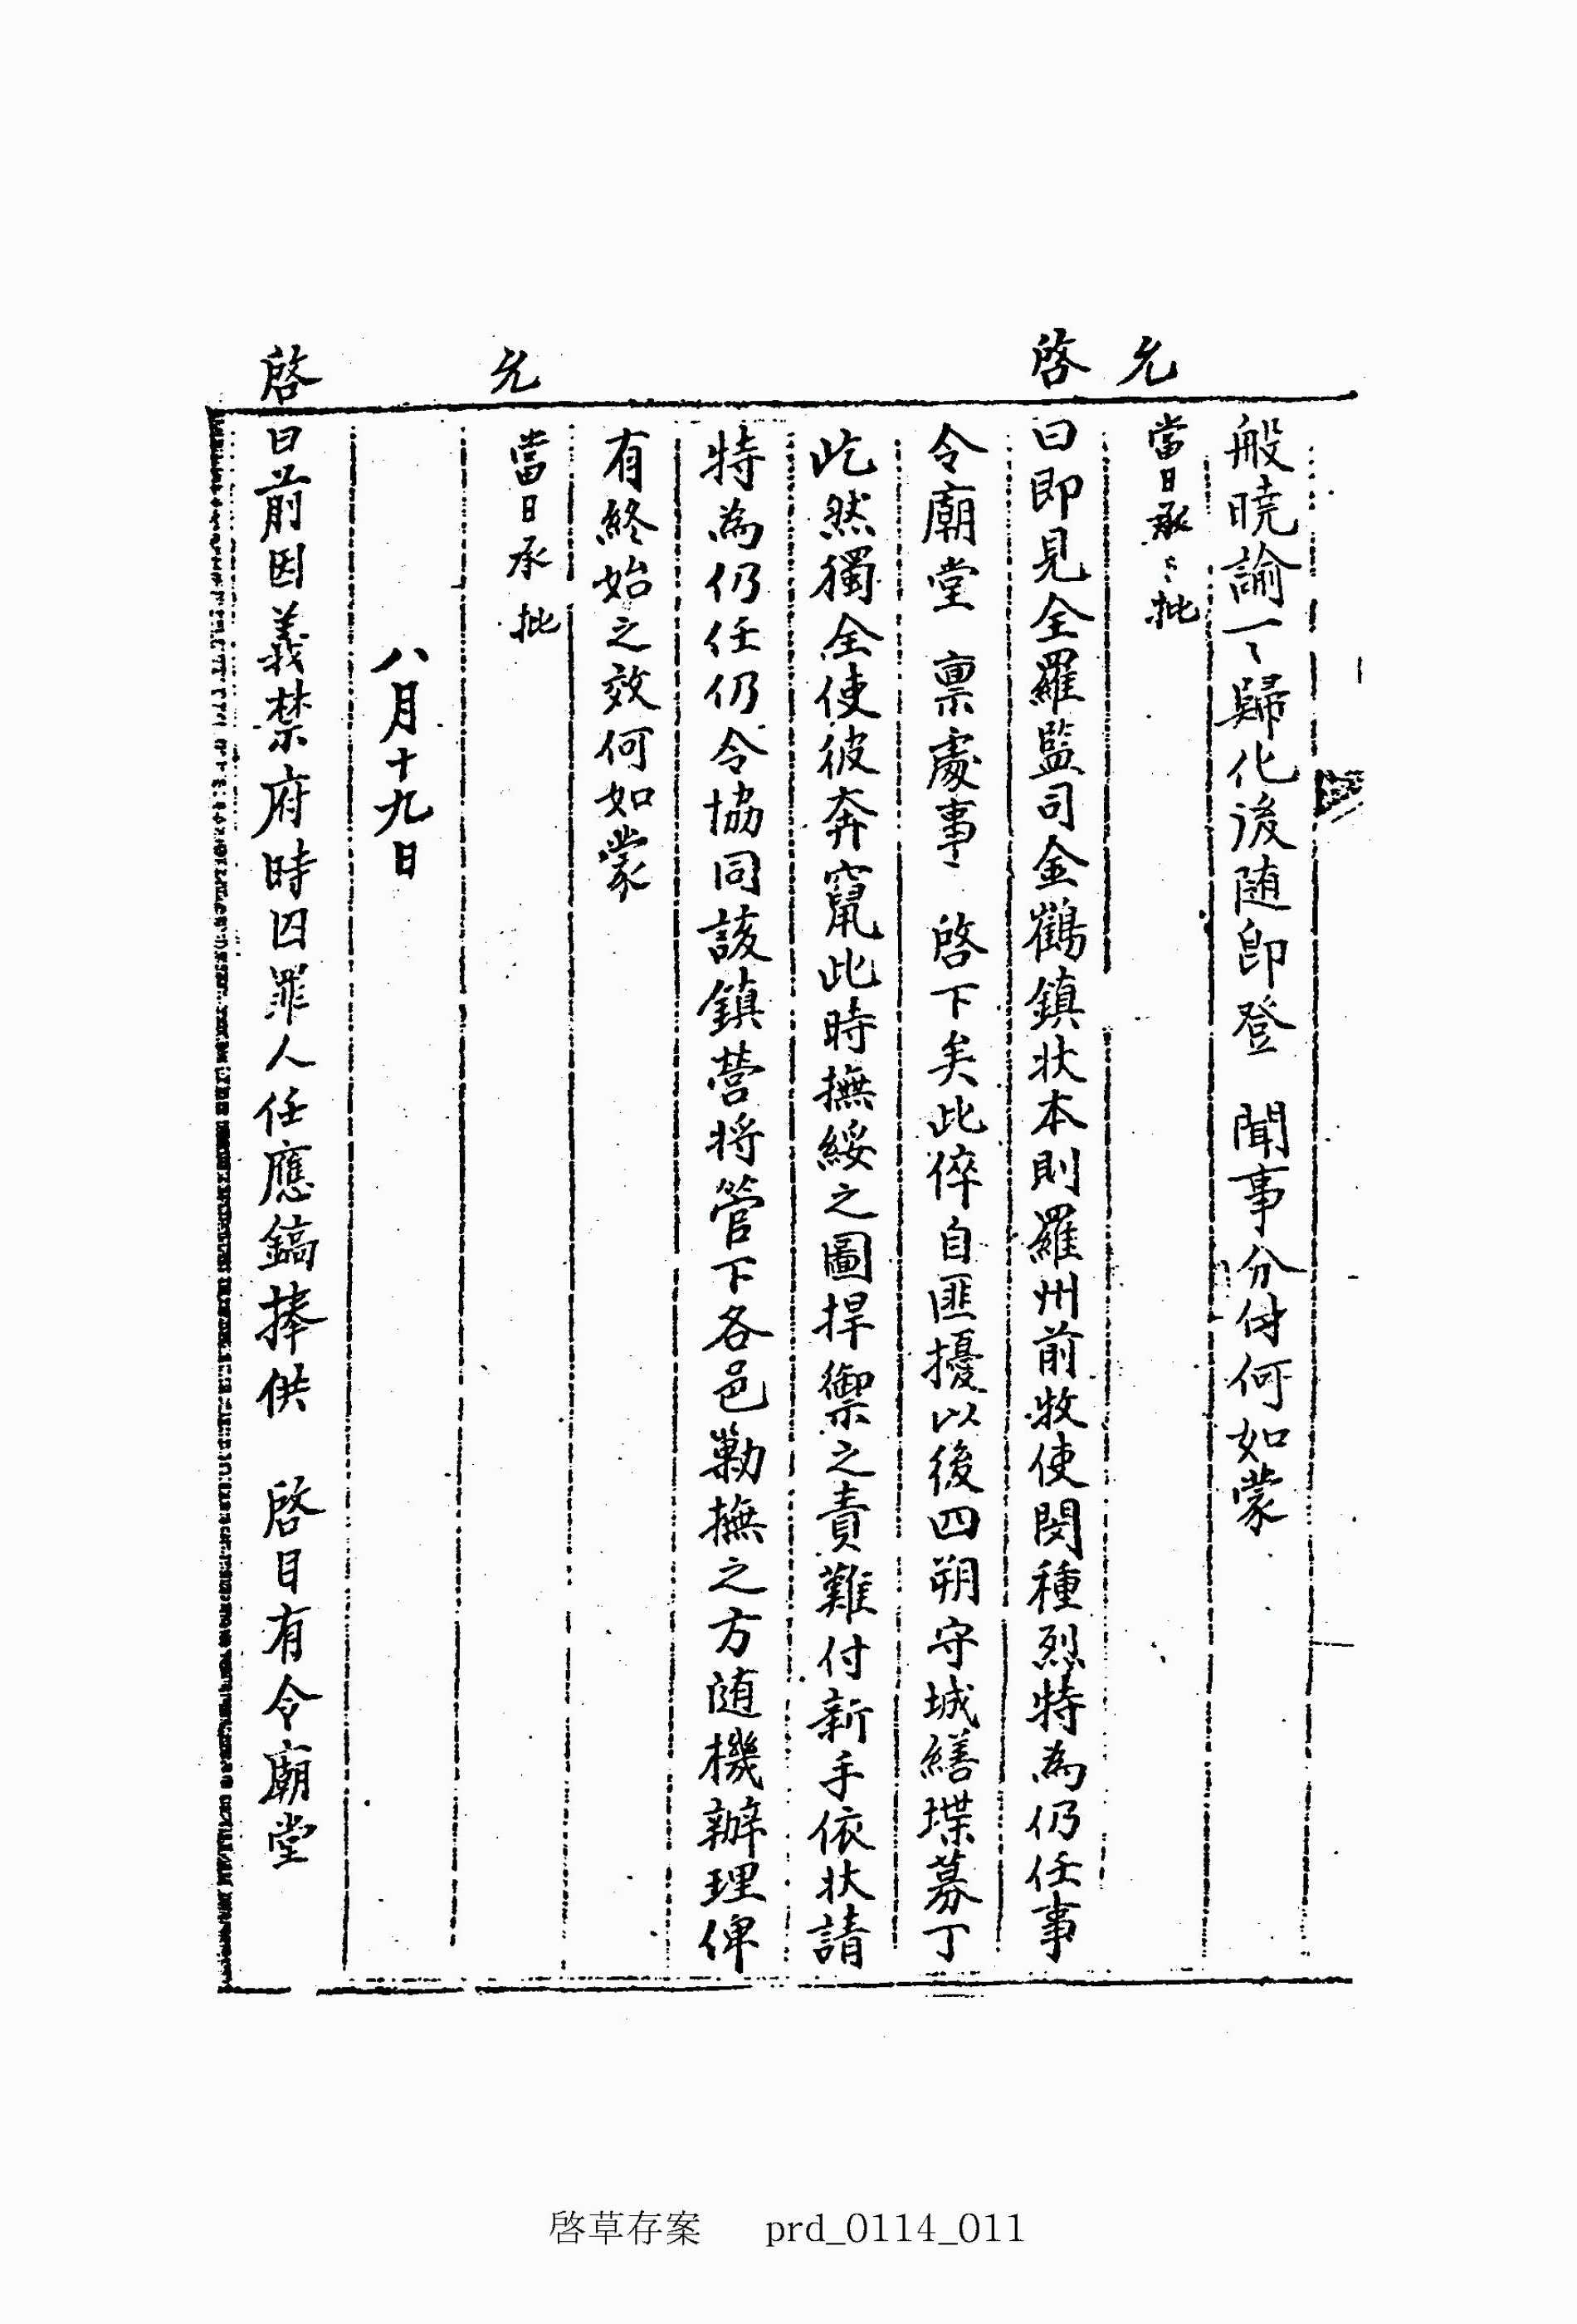 般曉諭一〻歸化後随卽登　聞事分付何如蒙
允
當日承〻批
啓曰卽見全羅監司金鶴鎮狀本則羅州前牧使閔種烈特為仍任事
令廟堂　禀處事　啓下矣此倅自匪擾以後四朔守城繕堞募丁
屹然獨全使彼奔竄此時撫綏之圖捍禦之責難付新手依狀請
特為仍任仍令協同該鎮營將管下各邑勦撫之方随機辦理俾
有終始之效何如蒙
允
當日承　批
八月十九日
啓曰前因義禁府時囚罪人任應鎬捧供　啓目有令廟堂
啓草存案　prd_0114_011